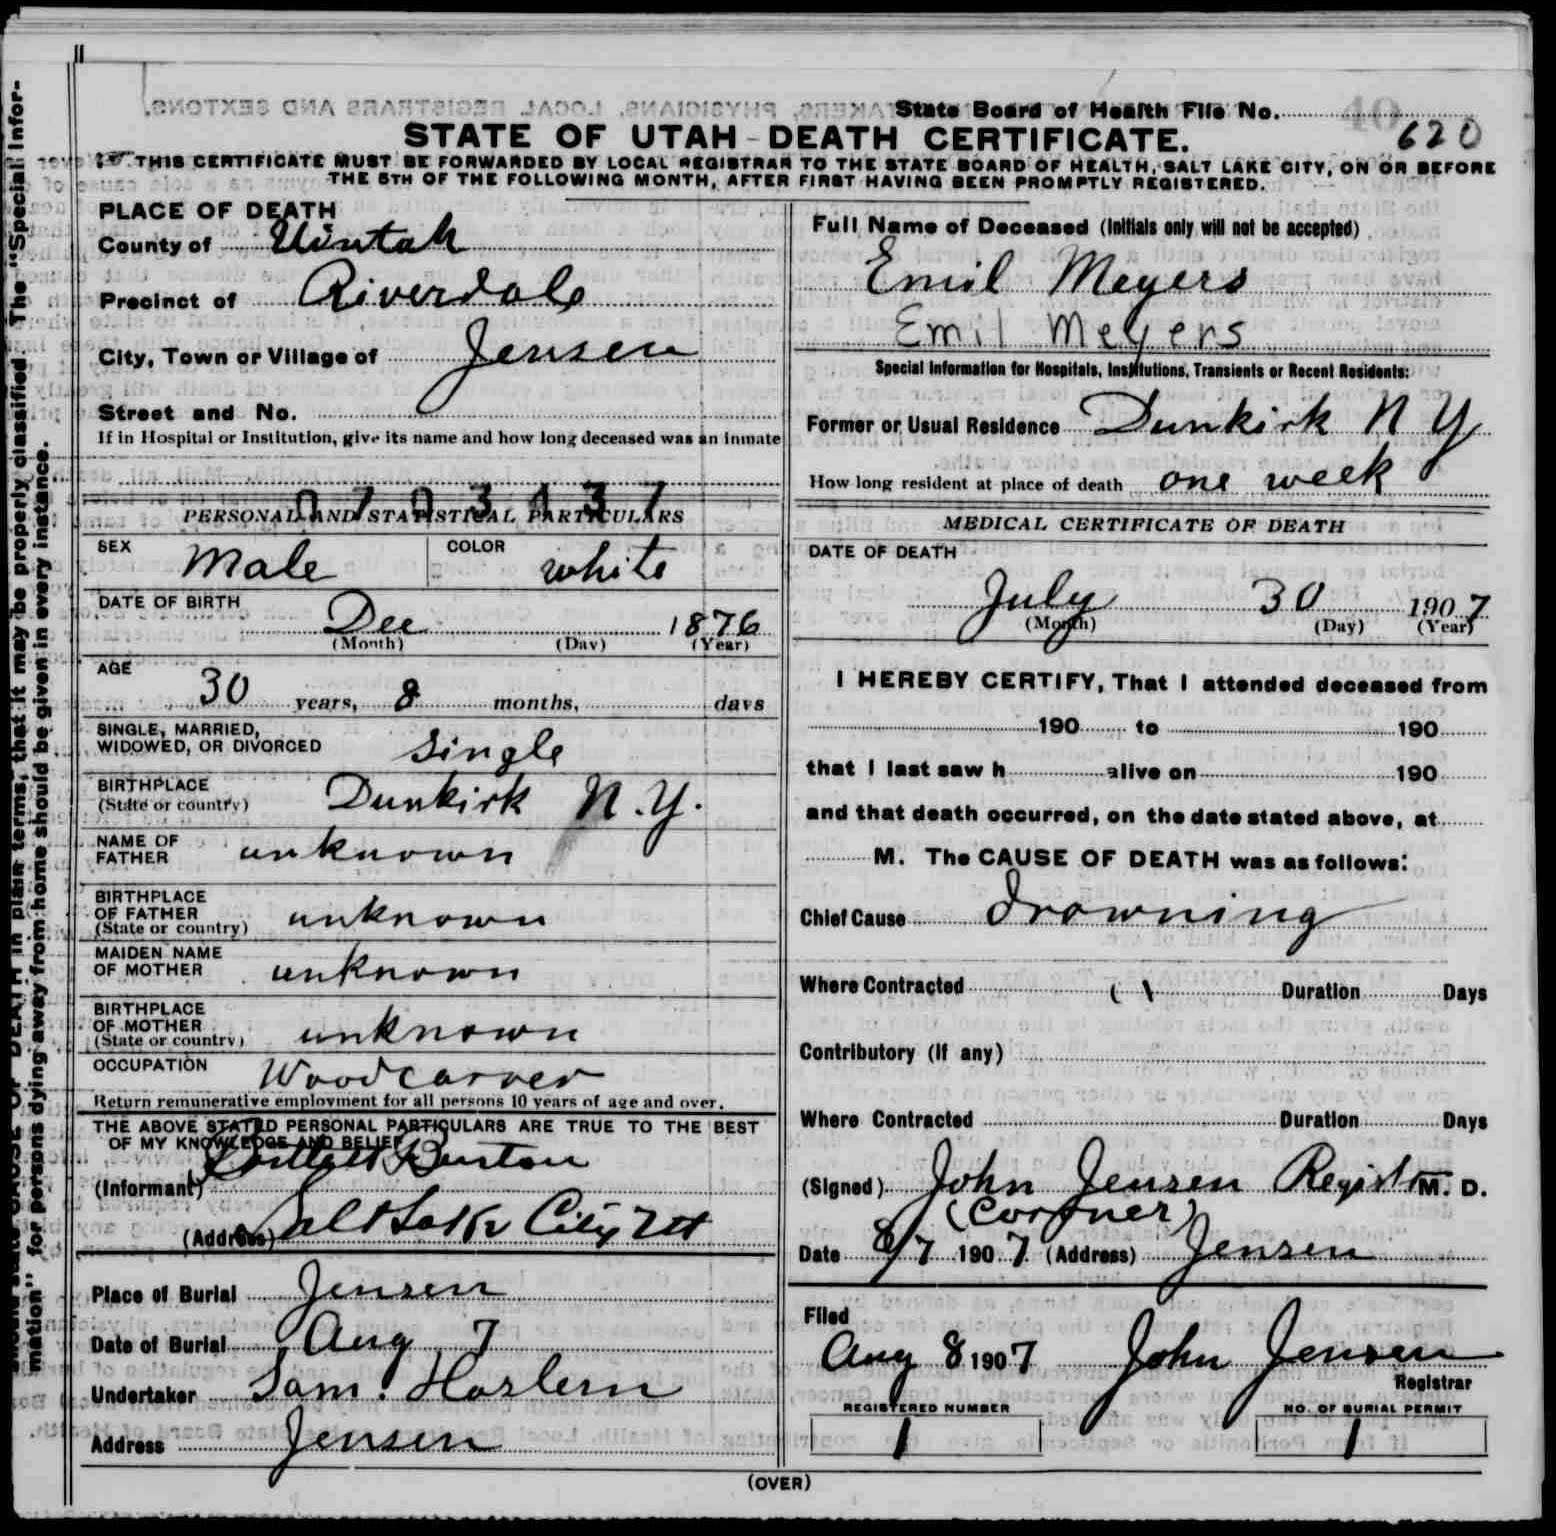 State Board of Health File No.
620
STATE OF UTAH - DEATH CERTIFICATE.
THIS CERTIFICATE MUST BE FORWARDED BY LOCAL REGISTRAR TO THE STATE BOARD OF HEALTH, SALT LAKE CITY, ON OR BEFORE
THE 5TH OF THE FOLLOWING MONTH, AFTER FIRST HAVING BEEN PROMPTLY REGISTERED.
PLACE OF DEATH
County of Uintah
Precinct of Riverdale
City, Town or Village of Jensen
Street and No.
If in Hospital or Institution, give its name and how long deceased was an inmate
PERSONAL AND STATISTICAL PARTICULARS
SEX Male COLOR white
DATE OF BIRTH
Dec 1876
(Month) (Day) (Year)
AGE
30 years, 8 months, days
SINGLE, MARRIED,
WIDOWED, OR DIVORCED single
BIRTHPLACE
(State or country) Dunkirk N.Y.
NAME OF
FATHER unknown
BIRTHPLACE
OF FATHER
(State or country) unknown
MAIDEN NAME
OF MOTHER unknown
BIRTHPLACE
OF MOTHER
(State or country) unknown
OCCUPATION Woodcarver
Return remunerative employment for all persons 10 years of age and over.
THE ABOVE STATED PERSONAL PARTICULARS ARE TRUE TO THE BEST
OF MY KNOWLEDGE AND BELIEF
(Informant) Burton
(Address) Salt Lake City Ut
Place of Burial Jensen
Date of Burial Aug 7
Undertaker Sam. Haslem
Address Jensen
Full Name of Deceased (Initials only will not be accepted)
Emil Meyers
Emil Meyers
Special Information for Hospitals, Institutions, Transients or Recent Residents:
Former or Usual Residence Dunkirk N Y
How long resident at place of death one week
MEDICAL CERTIFICATE OF DEATH
DATE OF DEATH
July 30 1907
(Month) (Day) (Year)
I HEREBY CERTIFY, That I attended deceased from
190 to 190
that I last saw h alive on 190
and that death occurred, on the date stated above, at
M. The CAUSE OF DEATH was as follows:
Chief Cause Drowning
Where Contracted Duration Days
Contributory (If any)
Where Contracted Duration Days
(Signed) John Jensen Registr M. D.
(Coroner)
Date 8/7 1907 (Address) Jensen
Filed
Aug 8 1907 John Jensen
Registrar
REGISTERED NUMBER NO. OF BURIAL PERMIT
1 1
(OVER)
mation" for persons dying away from home should be given in every instance.
CAUSE OF DEATH in plain terms, that it may be properly classified. The "Special Infor-